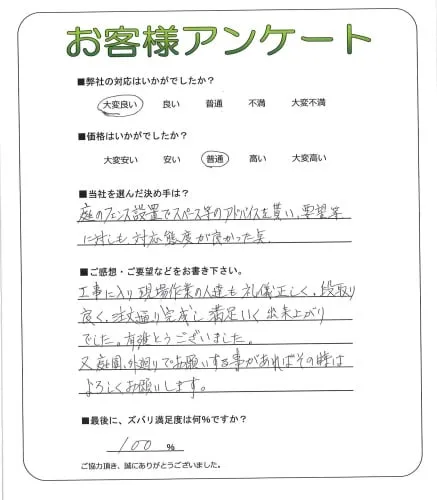 お客様アンケート
■弊社の対応はいかがでしたか？
大変良い 良い 普通 不満 大変不満
■価格はいかがでしたか？
大変安い 安い 普通 高い 大変高い
■当社を選んだ決め手は？
庭のフェンス設置でスペース等のアドバイスを貰い、要望等
に対しも対応態度が良かった点
■ご感想・ご要望などをお書き下さい。
工事に入り現場作業の人達も礼儀正しく、段取り
良く、注文通り完成し満足いく出来上がり
でした。有難とうございました。
又庭園、外廻りでお願いする事があればその時は
よろしくお願いします。
■最後に、ズバリ満足度は何％ですか？
100 ％
ご協力頂き、誠にありがとうございました。